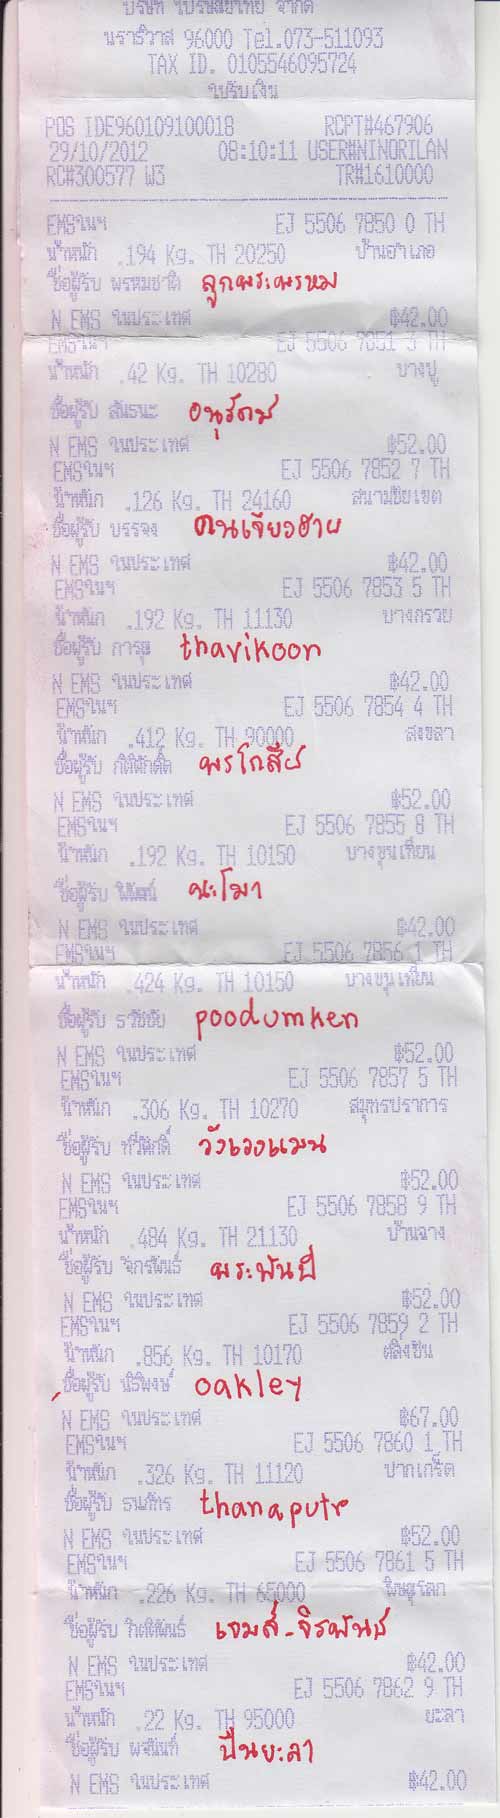 บริษัท ไปรษณีย์ไทย จำกัด
นราธิวาส 96000 Tel.073-511093
TAX ID. 0105546095724
ใบรับเงิน
POS IDE960109100018 RCPT#467906
29/10/2012 08:10:11 USER#NINORILAN
RC#300577 W3 TR#1610000
EMSในฯ EJ 5506 7850 0 TH
น้ำหนัก .194 Kg. TH 20250 บ้านอำเภอ
ชื่อผู้รับ พรหมชาติ ลูกพระพรหม
N EMS ในประเทศ ฿42.00
EMSในฯ EJ 5506 7851 3 TH
น้ำหนัก .42 Kg. TH 10280 บางปู
ชื่อผู้รับ สันธนะ อนุรักษ์
N EMS ในประเทศ ฿52.00
EMSในฯ EJ 5506 7852 7 TH
น้ำหนัก .126 Kg. TH 24160 สนามชัยเขต
ชื่อผู้รับ บรรจง คนเจียงฮาย
N EMS ในประเทศ ฿42.00
EMSในฯ EJ 5506 7853 5 TH
น้ำหนัก .192 Kg. TH 11130 บางกรวย
ชื่อผู้รับ การุญ thavikoon
N EMS ในประเทศ ฿42.00
EMSในฯ EJ 5506 7854 4 TH
น้ำหนัก .412 Kg. TH 90000 สงขลา
ชื่อผู้รับ กิติศักดิ์ พรโกสีย์
N EMS ในประเทศ ฿52.00
EMSในฯ EJ 5506 7855 8 TH
น้ำหนัก .192 Kg. TH 10150 บางขุนเทียน
ชื่อผู้รับ นะโมา
N EMS ในประเทศ ฿42.00
EMSในฯ EJ 5506 7856 1 TH
น้ำหนัก .424 Kg. TH 10150 บางขุนเทียน
ชื่อผู้รับ ธวัชชัย poodumken
N EMS ในประเทศ ฿52.00
EMSในฯ EJ 5506 7857 5 TH
น้ำหนัก .306 Kg. TH 10270 สมุทรปราการ
ชื่อผู้รับ ทวีศักดิ์ วังเวงแมน
N EMS ในประเทศ ฿52.00
EMSในฯ EJ 5506 7858 9 TH
น้ำหนัก .484 Kg. TH 21130 บ้านฉาง
ชื่อผู้รับ จักรพันธ์ พระพันปี
N EMS ในประเทศ ฿52.00
EMSในฯ EJ 5506 7859 2 TH
น้ำหนัก .856 Kg. TH 10170 ตลิ่งชัน
ชื่อผู้รับ นิธิพงษ์ oakley
N EMS ในประเทศ ฿67.00
EMSในฯ EJ 5506 7860 1 TH
น้ำหนัก .326 Kg. TH 11120 ปากเกร็ด
ชื่อผู้รับ ธนภัทร thanaputr
N EMS ในประเทศ ฿52.00
EMSในฯ EJ 5506 7861 5 TH
น้ำหนัก .226 Kg. TH 65000 พิษณุโลก
ชื่อผู้รับ กิตติพันธ์ เจมส์-จิรพันธ์
N EMS ในประเทศ ฿42.00
EMSในฯ EJ 5506 7862 9 TH
น้ำหนัก .22 Kg. TH 95000 ยะลา
ชื่อผู้รับ พจนินท์ ปืนยะลา
N EMS ในประเทศ ฿42.00